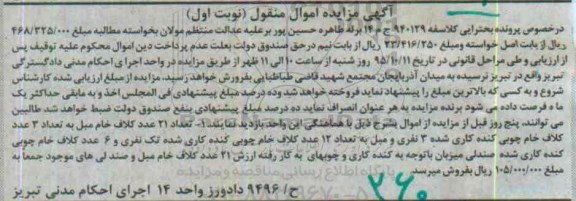 آگهی مزایده اموال منقول (نوبت اول)
درخصوص پرونده بحترایی کلاسه ۹۴۰۱۲۹ ج م ۱۴ برله طاهره حسین پور برعلیه عدالت منتظم مولان بخواسته مطالبه مبلغ ۴۶۸/۳۲۵/۰۰۰
ریال از بابت اصل خواسته ومبلغ ۲۳/۴۱۶/۲۵۰ ریال از بابت نیم درحق صندوق دولت بعلت عدم پرداخت دین اموال محکوم علیه توقیف پس
از ارزیابی و طی مراحل قانونی در تاریخ ۹۵/۱۰/۱۱ روز شنبه از ساعت ۱۰ الی ۱۱ ظهر از طریق مزایده در واحد اجرای احکام مدنی دادگستری
تبریز واقع در تبریز نرسیده به میدان آذربایجان مجتمع شهید قاضی طباطبایی بفروش خواهد رسید، مزایده از مبلغ ارزیابی شده کارشناس
شروع و به کسی که بالاترین مبلغ را پیشنهاد نماید فروخته خواهد شد وده درصد مبلغ پیشنهادی فی المجلس اخذ و به مابقی حداکثر یک
ماه فرصت داده می شود برنده مزایده به هر عنوان انصراف نماید ده درصد مبلغ پیشنهادی بنفع صندوق دولت ضبط خواهد شد طالبین
می توانند، پنج روز قبل از مزایده از اموال بشرح ذیل با هماهنگی این واحد بازدید نمایند ۱- تعداد ۲۱ عدد کلاف خام مبل به تعداد ۳ عدد
کلاف خام چوبی کنده کاری شده ۳ نفری و مبل به تعداد ۱۲ عدد کلاف خام چوبی کنده کاری شده تک نفری و ۶ عدد کلاف خام چوبی
کنده کاری شده صندلی میزبان باتوجه به کنده کاری و چوبهای به کار رفته ارزش ۲۱ عدد کلاف خام مبل و صندلی های موجود جمعا به
مبلغ ۱۰۵/۰۰۰/۰۰۰ ریال بفروش میرسد.
ح/ ۹۴۹۶ دادورز واحد ۱۴ اجرای احکام مدنی تبریز
۳۶۰